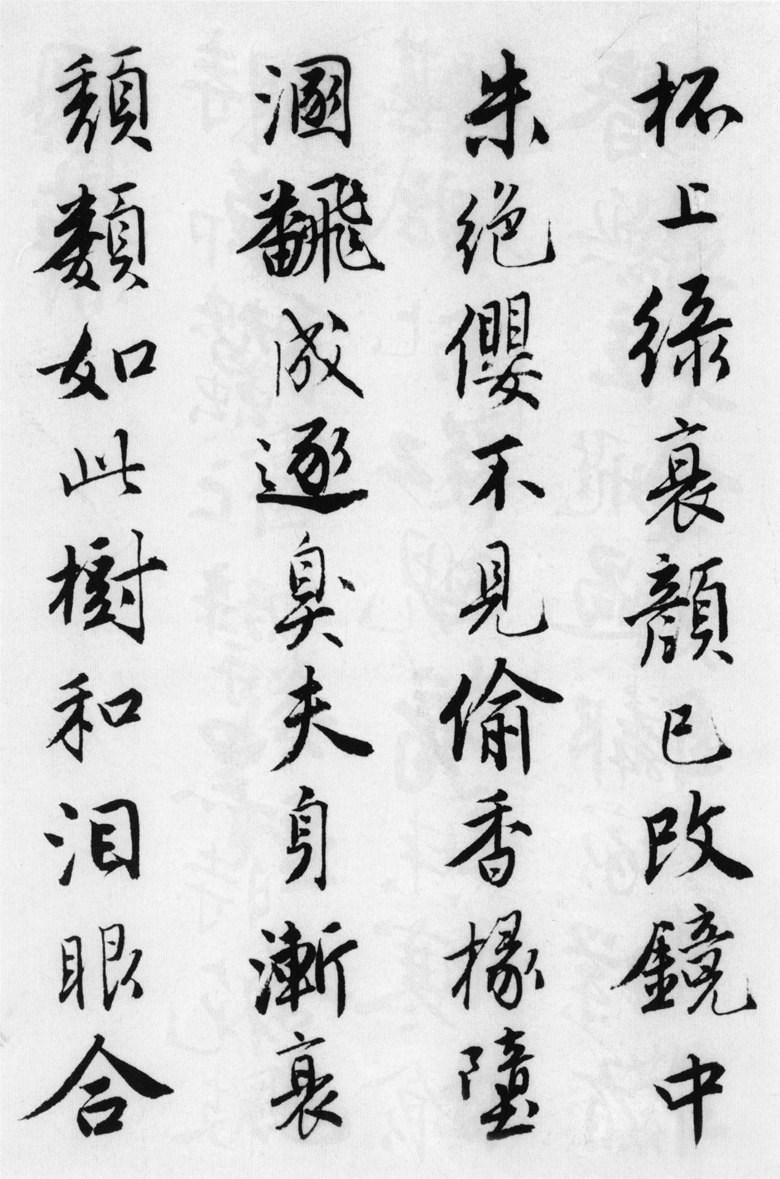 杯上綠衰顔已改鏡中
朱絶纓不見偷香掾墮
溷飜成逐臭夫身漸衰
頹類如此樹和泪眼合